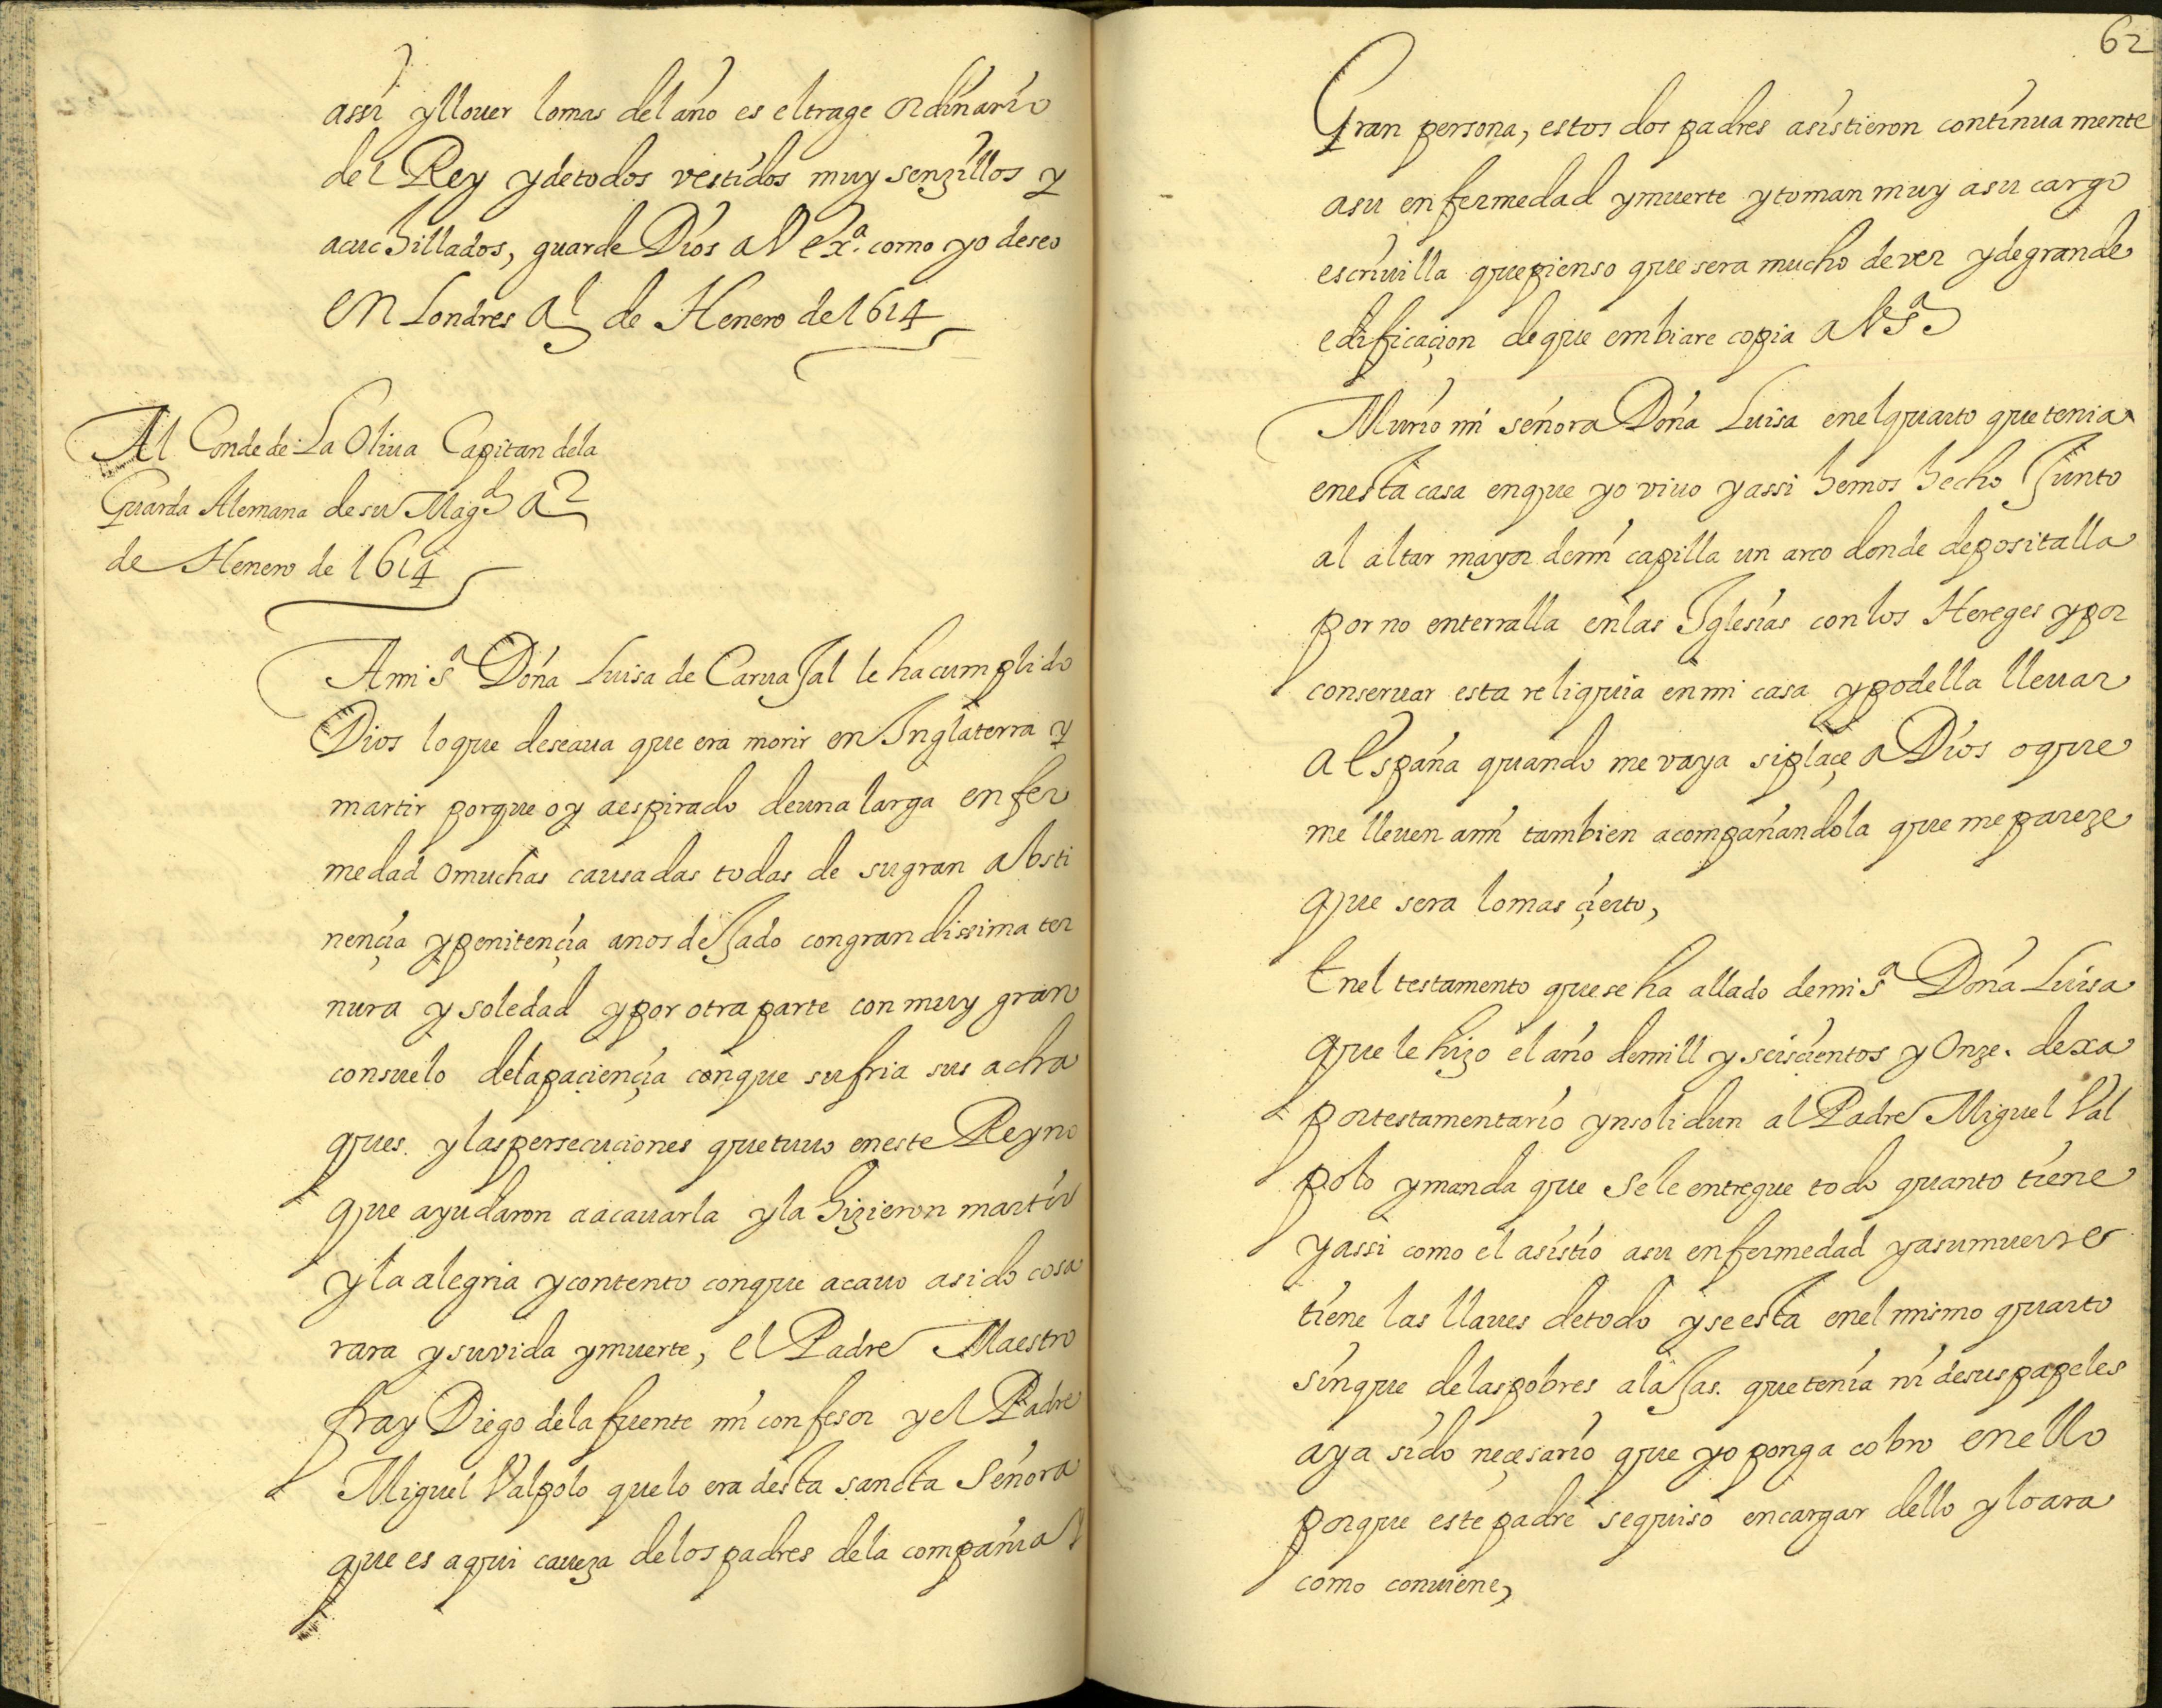 assi y llouer lo mas del año es el trage ordinario
del Rey y de todos vestidos muy senzillos y
acuchillados, guarde Dios a V exª. como yo deseo
en Londres a 1 de Henero de 1614
Al Conde de La Oliua Capitan de la
Guarda Alemana de su Magd a 2
de Henero de 1614
A mi sª Doña Luisa de CaruaJal le ha cumplido
Dios lo que deseaua que era morir en Inglaterra y
martir porque oy a espirado de una larga enfer
medad o muchas causadas todas de su gran absti
nençia y penitençia a nos deJado con grandissima ter
nura y soledad y por otra parte con muy gran
consuelo de la paçiençia con que sufria sus acha
ques. y las persecuciones que tuuo en este Reyno
que ayudaron a acauarla y la hizieron martir
y la alegria y contento con que acauo a sido cosa
rara y su vida y muerte, el Padre Maestro
fray Diego de la fuente mi confesor y el Padre
Miguel Valpolo que lo era desta sancta Señora
que es aqui caueza de los padres de la compañia
62
Gran persona, estos dos padres asistieron continuamente
a su enfermedad y muerte y toman muy a su cargo
escriuilla que pienso que sera mucho de ver y de grande
edificaçion de que embiare copia a V Sª
Murio mi señora Doña Luisa en el quarto que tenia
en esta casa en que yo viuo y assi hemos hecho Junto
al altar mayor de mi capilla un arco donde depositalla
por no enterralla en las Iglesias con los Hereges y por
conseruar esta reliquia en mi casa y podella lleuar
a España quando me vaya si plaçe a Dios o que
me lleuen a mi tambien acompañandola que me pareze
que sera lo mas çierto,
En el testamento que se ha allado de mi sª Doña Luisa
que le hizo el año de mill y seisçientos y Onze. dexa
por testamentario ynsolidun al Padre Miguel Val
polo y manda que se le entregue todo quanto tiene
y assi como el asistio a su enfermedad y a su muerte
tiene las llaues de todo y se esta en el mismo quarto
sin que de las pobres alaJas. que tenia ni de sus papeles
aya sido neçesario que yo ponga cobro en ello
porque este padre se quiso encargar dello y lo ara
como conuiene,